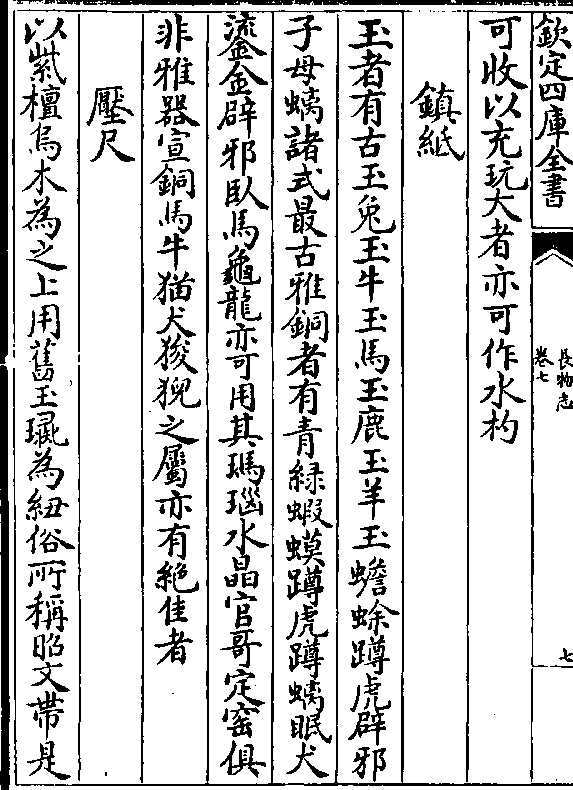 欽定四庫全書
長物志
卷七
七
可收以充玩大者亦可作水杓
鎮紙
玉者有古玉兎玉牛玉馬玉鹿玉羊玉蟾蜍蹲虎辟邪
子母螭諸式最古雅銅者有青緑蝦蟆蹲虎蹲螭眠犬
鎏金辟邪臥馬龜龍亦可用其瑪瑙水晶官哥定窑俱
非雅器宣銅馬牛猫犬狻猊之屬亦有絶佳者
壓尺
以紫檀烏木為之上用舊玉璏為紐俗所稱昭文帶是